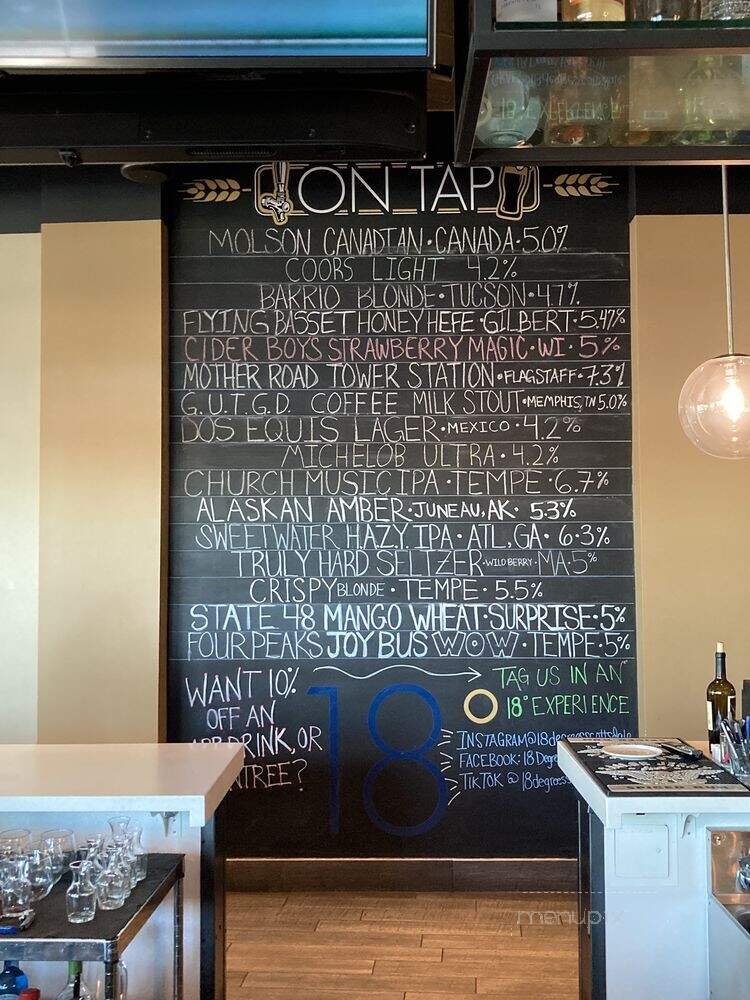 ON TAP
MOLSON CANADIAN • CANADA • 5.0%
COORS LIGHT 4.2%
BARRIO BLONDE • TUCSON • 4.7%
FLYING BASSET HONEY HEFE • GILBERT • 5.47%
CIDER BOYS STRAWBERRY MAGIC • WI • 5%
MOTHER ROAD TOWER STATION • FLAGSTAFF • 7.3%
G.U.T.G.D. COFFEE MILK STOUT • MEMPHIS, TN 5.0%
DOS EQUIS LAGER • MEXICO • 4.2%
MICHELOB ULTRA • 4.2%
CHURCH MUSIC IPA • TEMPE • 6.7%
ALASKAN AMBER • JUNEAU, AK • 5.3%
SWEETWATER HAZY IPA • ATL, GA • 6.3%
TRULY HARD SELTZER • WILD BERRY • MA • 5%
CRISPY BLONDE • TEMPE • 5.5%
STATE 48 MANGO WHEAT • SURPRISE • 5%
FOUR PEAKS JOY BUS WOW • TEMPE • 5%
WANT 10%
OFF AN
DRINK, OR
ENTREE?
18
TAG US IN AN
18° EXPERIENCE
INSTAGRAM@18degreesscottsdale
FACEBOOK: 18 Degre
TIKTOK @ 18degrees
menup